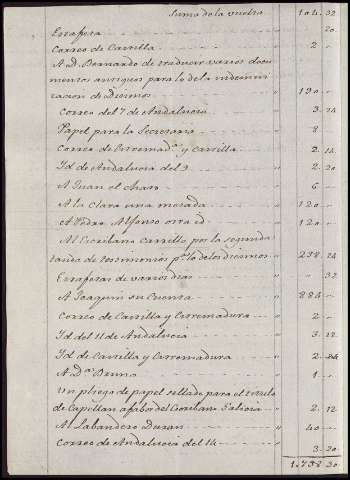 Suma de la vuelta 104. 32
Estafeta 20
Correo de Castilla 2. "
A D. Bernardo de traducir varios docu
mentos antiguos para lo de la indemni
zacion de Diezmos 190 "
Correo del 7 de Andalucia 3. 24
Papel para la Secretaria 8 "
Correo de Estremad.ª y Castilla 2. 14
Yd de Andalucia del 9 2. 20
A Juan el 6 "
A la Clara una mesada 120 "
A Pedro Alfonso otra id 120 "
Al Escribano Carrillo por la segunda
de testimonios p.ª lo de los diezmos 238. 24
Estafetas de varios dias " 32
A Joaquin su Cuenta 884 "
Correo de Castilla y Estremadura 2 "
Yd del 11 de Andalucia 3. 12
Yd de Castilla y Estremadura 2. 24
A D.ª Bruna 1 "
Un pliego de papel sellado para el titulo
de Capellan a fabor del 2. 12
Al Labandero Duran 40 "
Correo de Andalucia del 14 3. 20
1.738 30